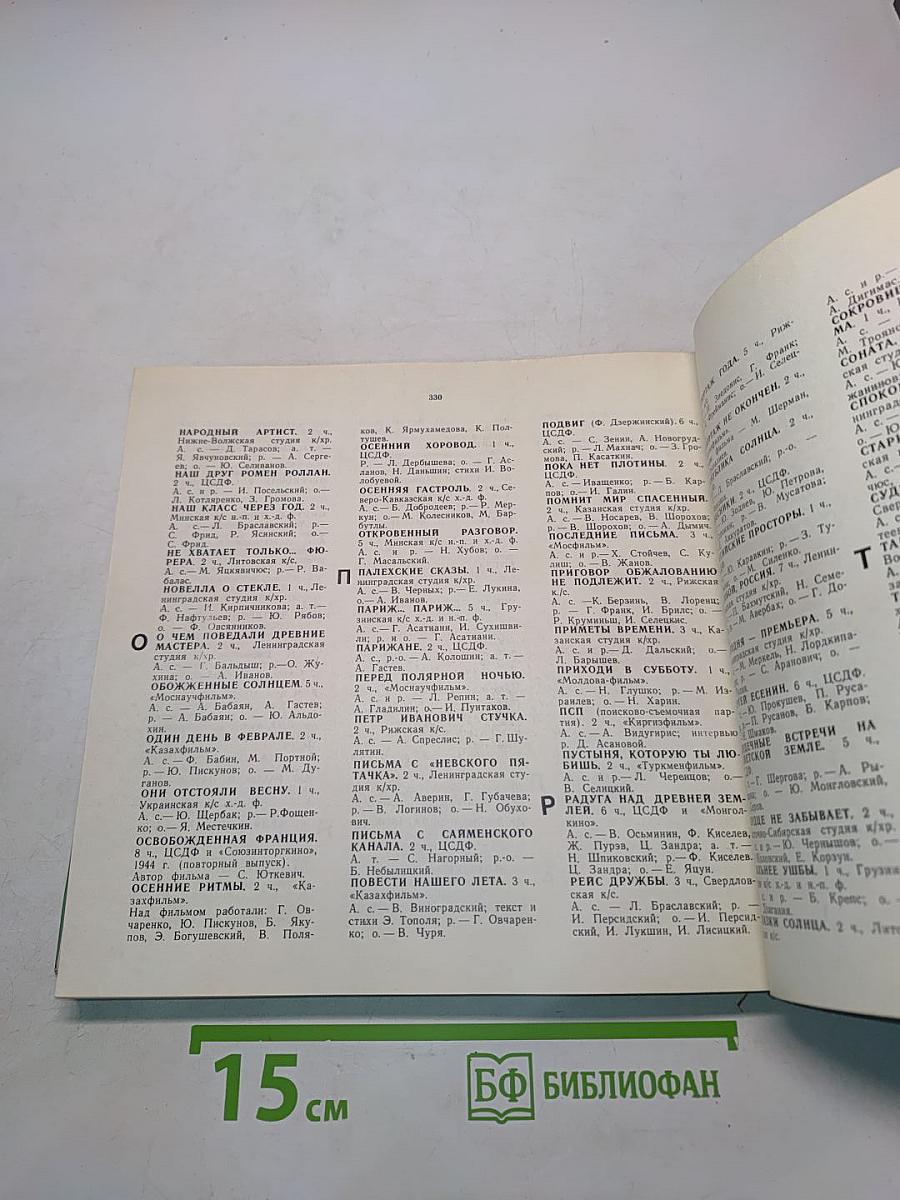 330
НАРОДНЫЙ АРТИСТ. 2 ч.,
Нижне-Волжская студия к/хр.
А. с. — Д. Тарасов; а. т. —
Я. Явчуновский; р. — А. Серге-
ев; о. — Ю. Селиванов.
НАШ ДРУГ РОМЕН РОЛЛАН.
2 ч., ЦСДФ.
А. с. и р. — И. Посельский; о.—
Л. Котляренко, З. Громова.
НАШ КЛАСС ЧЕРЕЗ ГОД. 2 ч.,
Минская к/с н.-п. и х.-д. ф.
А. с.— Л. Браславский; р.—
С. Фрид, Р. Ясинский; о.—
С. Фрид.
НЕ ХВАТАЕТ ТОЛЬКО... ФЮ-
РЕРА. 2 ч., Литовская к/с.
А. с.— М. Яцкявичюс; р.— Р. Ва-
балас.
НОВЕЛЛА О СТЕКЛЕ. 1 ч., Ле-
нинградская студия к/хр.
А. с. — И. Кирпичникова; а. т.—
Ф. Нафтульев; р. — Ю. Рябов;
о. — Ф. Овсянников.
О
О ЧЕМ ПОВЕДАЛИ ДРЕВНИЕ
МАСТЕРА. 2 ч., Ленинградская
студия к/хр.
А. с. — Г. Бальдыш; р.—О. Жу-
хина; о. — А. Иванов.
ОБОЖЖЕННЫЕ СОЛНЦЕМ. 5 ч.,
«Моснаучфильм».
А. с. — А. Бабаян, А. Гастев;
р. — А. Бабаян; о. — Ю. Альдо-
хин.
ОДИН ДЕНЬ В ФЕВРАЛЕ. 2 ч.,
«Казахфильм».
А. с.— Ф. Бабин, М. Портной;
р.— Ю. Пискунов; о. — М. Ду-
ганов.
ОНИ ОТСТОЯЛИ ВЕСНУ. 1 ч.,
Украинская к/с х.-д. ф.
А. с.—Ю. Щербак; р.— Р.Фощен-
ко; о.— Я. Местечкин.
ОСВОБОЖДЕННАЯ ФРАНЦИЯ.
8 ч., ЦСДФ и «Союзинторгкино»,
1944 г. (повторный выпуск).
Автор фильма — С. Юткевич.
ОСЕННИЕ РИТМЫ. 2 ч., «Ка-
захфильм».
Над фильмом работали: Г. Ов-
чаренко, Ю. Пискунов, Б. Яку-
пов, Э. Богушевский, В. Поля-
ков, К. Ярмухамедова, К. Пол-
тушев.
ОСЕННИЙ ХОРОВОД. 1 ч.,
ЦСДФ.
Р. — Л. Дербышева; о. — Г. Ас-
ланов, Н. Даньшин; стихи И. Во-
лобуевой.
ОСЕННЯЯ ГАСТРОЛЬ. 2 ч., Се-
веро-Кавказская к/с х.-д. ф.
А. с.— Б. Добродеев; р.— Р. Мер-
кун; о.— М. Колесников, М. Бар-
бутлы.
ОТКРОВЕННЫЙ РАЗГОВОР.
5 ч., Минская к/с н.-п. и х.-д. ф.
А. с. и р. — Н. Хубов; о. —
Г. Масальский.
П
ПАЛЕХСКИЕ СКАЗЫ. 1 ч., Ле-
нинградская студия к/хр.
А. с.— В. Черных; р.— Е. Лукина,
о.— А. Иванов.
ПАРИЖ... ПАРИЖ... 5 ч., Гру-
зинская к/с х.-д. и н.-п. ф.
А. с.— Г. Асатиани, И. Сухишви-
ли; р. и о. — Г. Асатиани.
ПАРИЖАНЕ. 2 ч., ЦСДФ.
А. с., р.-о. — А. Колошин; а. т.—
А. Гастев.
ПЕРЕД ПОЛЯРНОЙ НОЧЬЮ.
2 ч., «Моснаучфильм».
А. с. и р. — Л. Репин; а. т. —
А. Гладилин; о.— И. Пунтаков.
ПЕТР ИВАНОВИЧ СТУЧКА.
2 ч., Рижская к/с.
А. с. — А. Спреслис; р. — Г. Шу-
лятин.
ПИСЬМА С «НЕВСКОГО ПЯ-
ТАЧКА». 2 ч., Ленинградская сту-
дия к/хр.
А. с.— А. Аверин, Г. Губачева;
р.— В. Логинов; о.— Н. Обухо-
вич.
ПИСЬМА С САЙМЕНСКОГО
КАНАЛА. 2 ч., ЦСДФ.
А. т. — С. Нагорный; р.-о. —
Б. Небылицкий.
ПОВЕСТИ НАШЕГО ЛЕТА. 3 ч.,
«Казахфильм».
А. с.— В. Виноградский; текст и
стихи Э. Тополя; р.— Г. Овчарен-
ко; о.— В. Чуря.
ПОДВИГ (Ф. Дзержинский). 6 ч.,
ЦСДФ.
А. с. — С. Зенин, А. Новогруд-
ский; р.— Л. Махнач; о.— З. Гро-
мова, П. Касаткин.
ПОКА НЕТ ПЛОТИНЫ. 2 ч.,
ЦСДФ.
А. с.— Иващенко; р.— Б. Кар-
пов; о.— И. Галин.
ПОМНИТ МИР СПАСЕННЫЙ.
2 ч., Казанская студия к/хр.
А. с.— В. Носарев, В. Шорохов;
р.— В. Шорохов; о.— А. Дымич.
ПОСЛЕДНИЕ ПИСЬМА. 3 ч.,
«Мосфильм».
А. с. и р.—Х. Стойчев, С. Ку-
лиш; о.— В. Жанов.
ПРИГОВОР ОБЖАЛОВАНИЮ
НЕ ПОДЛЕЖИТ. 2 ч., Рижская
к/с.
А. с. —К. Берзинь, В. Лоренц;
р. — Г. Франк, И. Брилс; о. —
Р. Круминьш, И. Селецкис.
ПРИМЕТЫ ВРЕМЕНИ. 3 ч., Ка-
занская студия к/хр.
А. с. и р.— Д. Дальский; о.—
Л. Барышев.
ПРИХОДИ В СУББОТУ. 1 ч.,
«Молдова-фильм».
А. с.— Н. Глушко; р.— М. Из-
раилев; о.— Н. Харин.
ПСП (поисково-съемочная пар-
тия). 2 ч., «Киргизфильм».
А. с.— А. Видугирис; интервью
р. Д. Асановой.
ПУСТЫНЯ, КОТОРУЮ ТЫ ЛЮ-
БИШЬ. 2 ч., «Туркменфильм».
А. с. и р.— Л. Черенцов; о.—
В. Селицкий.
Р
РАДУГА НАД ДРЕВНЕЙ ЗЕМ-
ЛЕЙ. 6 ч., ЦСДФ и «Монгол-
кино».
А. с.— В. Осьминин, Ф. Киселев,
Ж. Пурэв, Ц. Зандра; а. т.—
Н. Шпиковский; р.— Ф. Киселев.
Ц. Зандра; о.— Е. Яцун.
РЕЙС ДРУЖБЫ. 3 ч., Свердлов-
ская к/с.
А. с. — Л. Браславский; р. —
И. Персидский; о.— И. Персид-
ский, И. Лукшин, И. Лисицкий.
ГОДА. 5 ч., Риж-
Г. Франк;
о.— И. Селец-
НЕ ОКОНЧЕН. 2 ч.,
М. Шерман,
СОЛНЦА. 2 ч.,
Браславский; р.-о. —
2 ч., ЦСДФ.
Ю. Петрова,
В. Мусатова;
ПРОСТОРЫ. 1 ч.,
Каравкин; р.— З. Ту-
М. Силенко.
РОССИЯ. 7 ч., Ленин-
студия к/хр.
Бахмутский, Н. Семе-
М. Авербах; о.— Г. До-
— ПРЕМЬЕРА. 5 ч.,
студия к/хр.
Меркель, Н. Лордкипа-
С. Аранович; о. —
ЕСЕНИН. 6 ч., ЦСДФ.
Ю. Прокушев, П. Руса-
П. Русанов, Б. Карпов;
ВСТРЕЧИ НА
ЗЕМЛЕ. 5 ч.,
Г. Шергова; р.— А. Ры-
о. — Ю. Монгловский,
НЕ ЗАБЫВАЕТ. 2 ч.,
студия к/хр.
Ю. Чернышов; о. —
Е. Корзун.
УШБЫ. 1 ч., Грузин-
к/с х.-д. и н.-п. ф.
с. и р. — Б. Крепс; о. —
СОЛНЦА. 2 ч., Лито-
к/с.
А. с. и р.—
А. Дигимас
СОКРОВИЩ
МА. 1 ч.,
А. с. —
М. Троян
СОНАТА.
ская студ
А. с.— Ю
СПОКО
нинград
СТАР
ская
СУД
Свер
Т
ТА
15 см
БФ БИБЛИОФАН